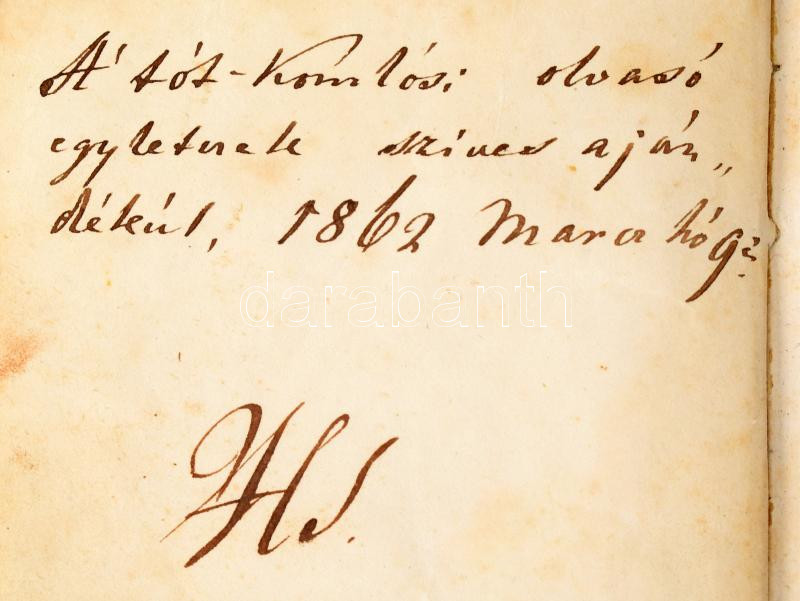 A' tót-komlósi olvasó
egyletnek szives aján„
dékúl, 1862 Marcz hó 9.
darabanth
HS.